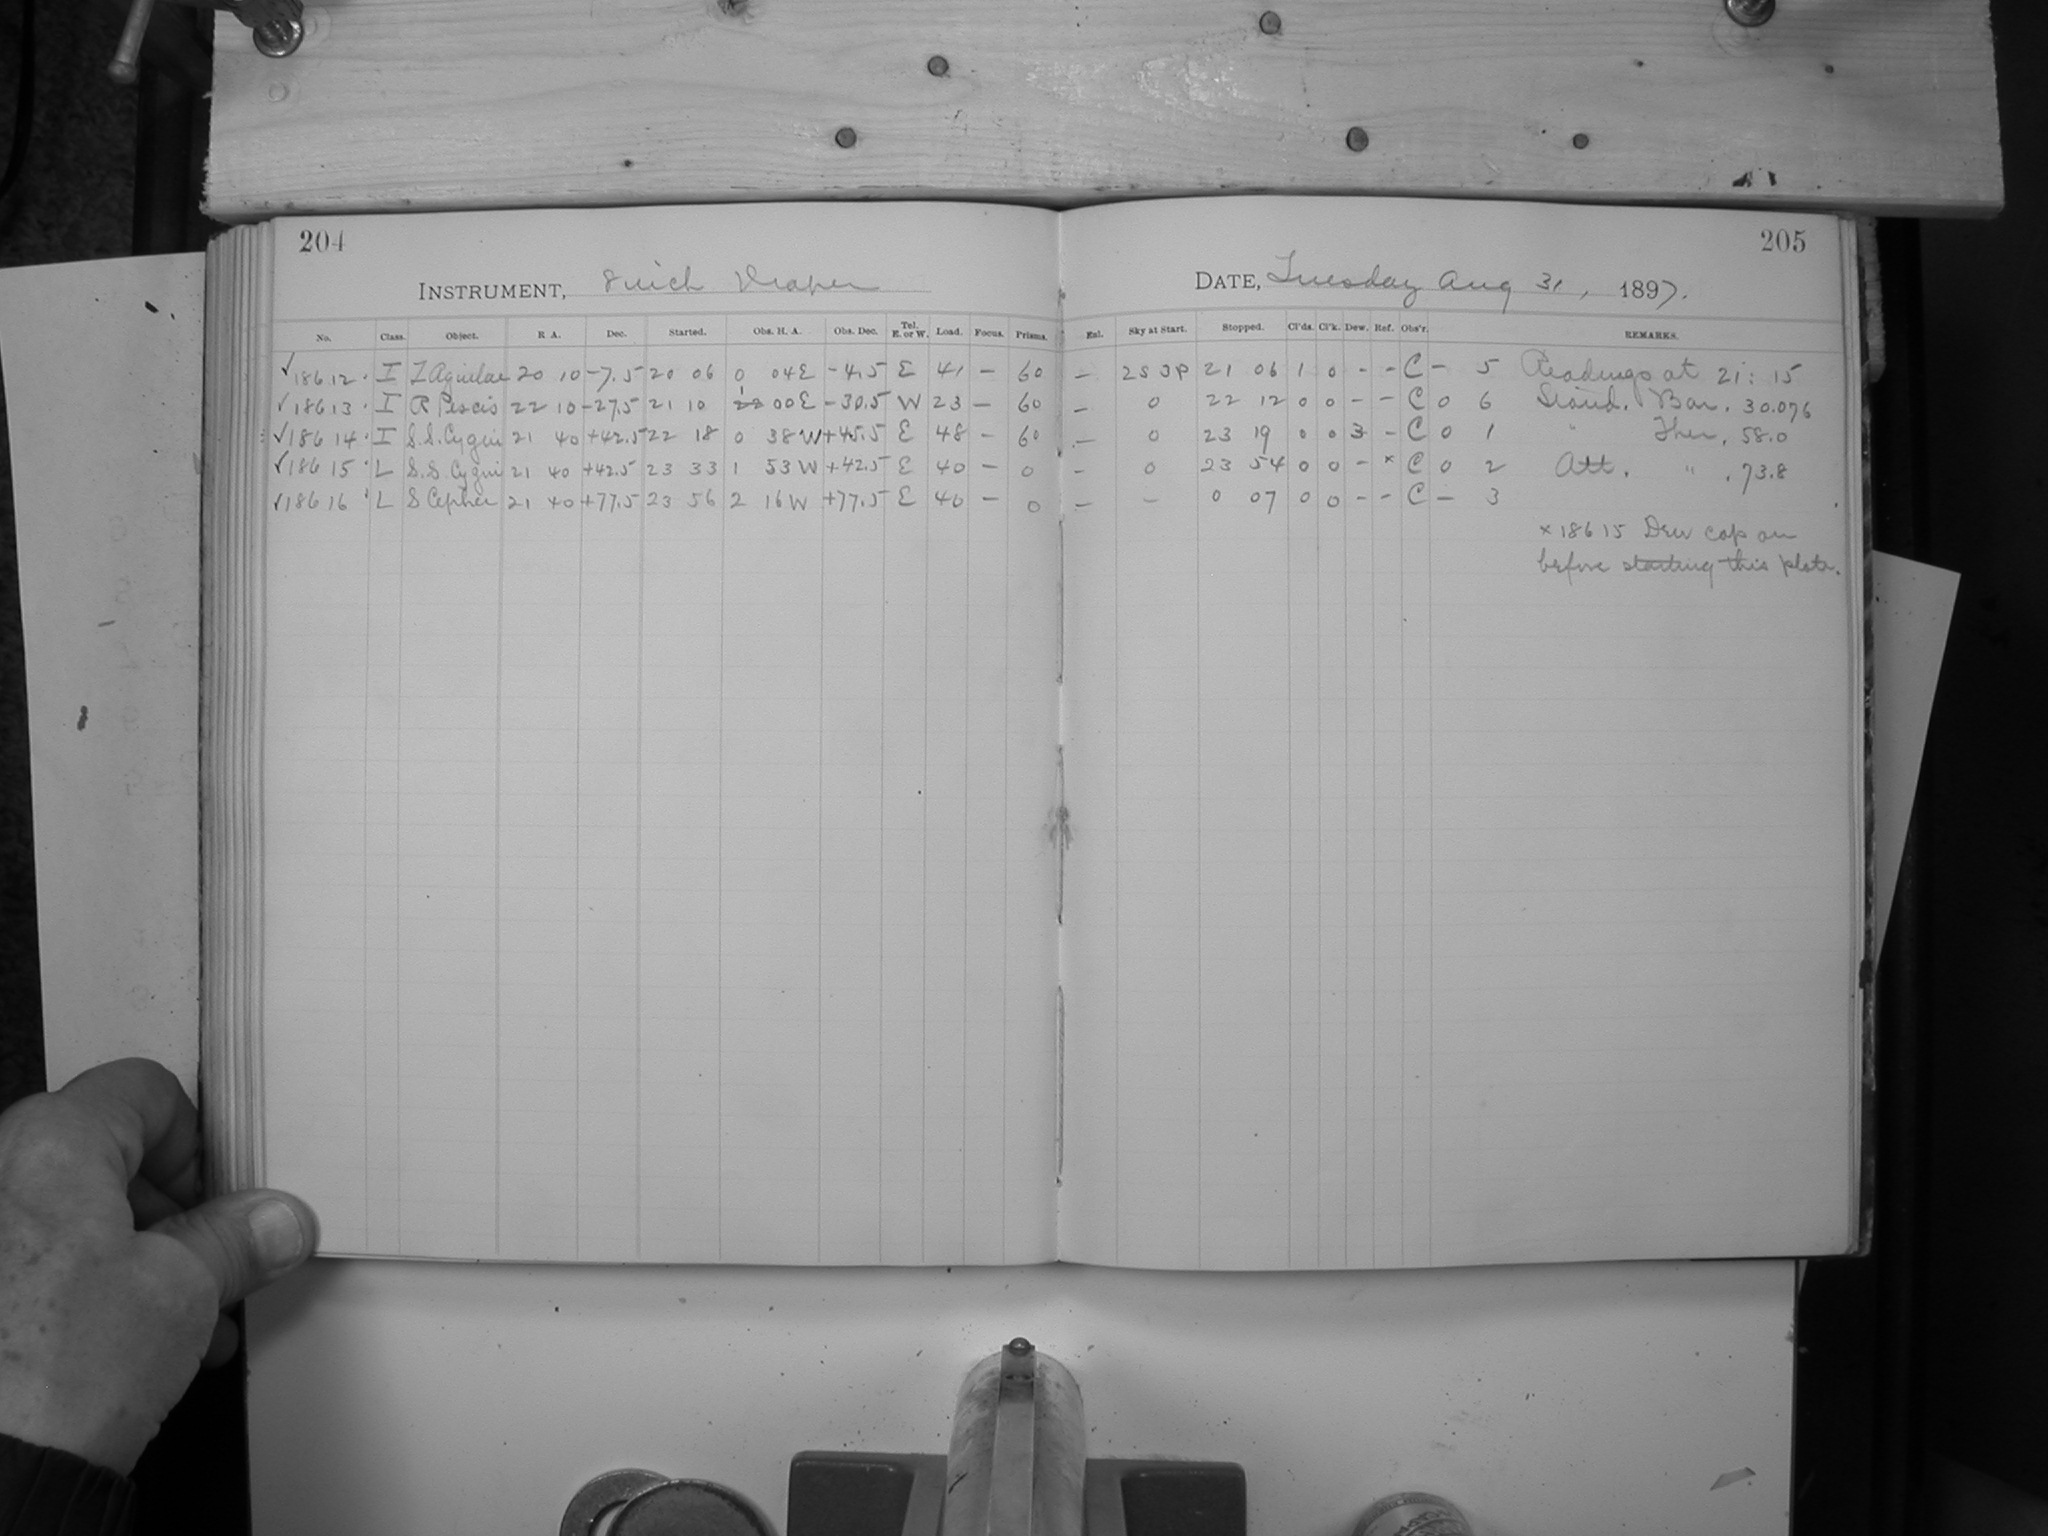 204
205
INSTRUMENT, 8 inch Draper
DATE, Tuesday Aug 31, 1897.
No. Class. Object. R A. Dec. Started. Obs. H. A. Obs. Dec. Tel. E. or W. Load. Focus. Prisms. Enl. Sky at Start. Stopped. Cl'ds. Cl'k. Dew. Ref. Obs'r. REMARKS.
✓18612 I Z Aquilae 20 10 -7.5 20 06 0 04E -4.5 E 41 - 60 - 2S 3P 21 06 1 0 - - C - 5 Readings at 21:15
✓18613 I R Piscis 22 10 -27.5 21 10 1 00E -30.5 W 23 - 60 - 0 22 12 0 0 - - C 0 6 Stand. Bar. 30.076
✓18614 I S.S. Cygni 21 40 +42.5 22 18 0 38W +45.5 E 48 - 60 - 0 23 19 0 0 3 - C 0 1 " Ther. 58.0
✓18615 L S.S. Cygni 21 40 +42.5 23 33 1 53W +42.5 E 40 - 0 - 0 23 54 0 0 - × C 0 2 Att. " . 73.8
✓18616 L S Cephei 21 40 +77.5 23 56 2 16W +77.5 E 40 - 0 - - 0 07 0 0 - - C - 3
× 18615 Dew cap on
before starting this plate.